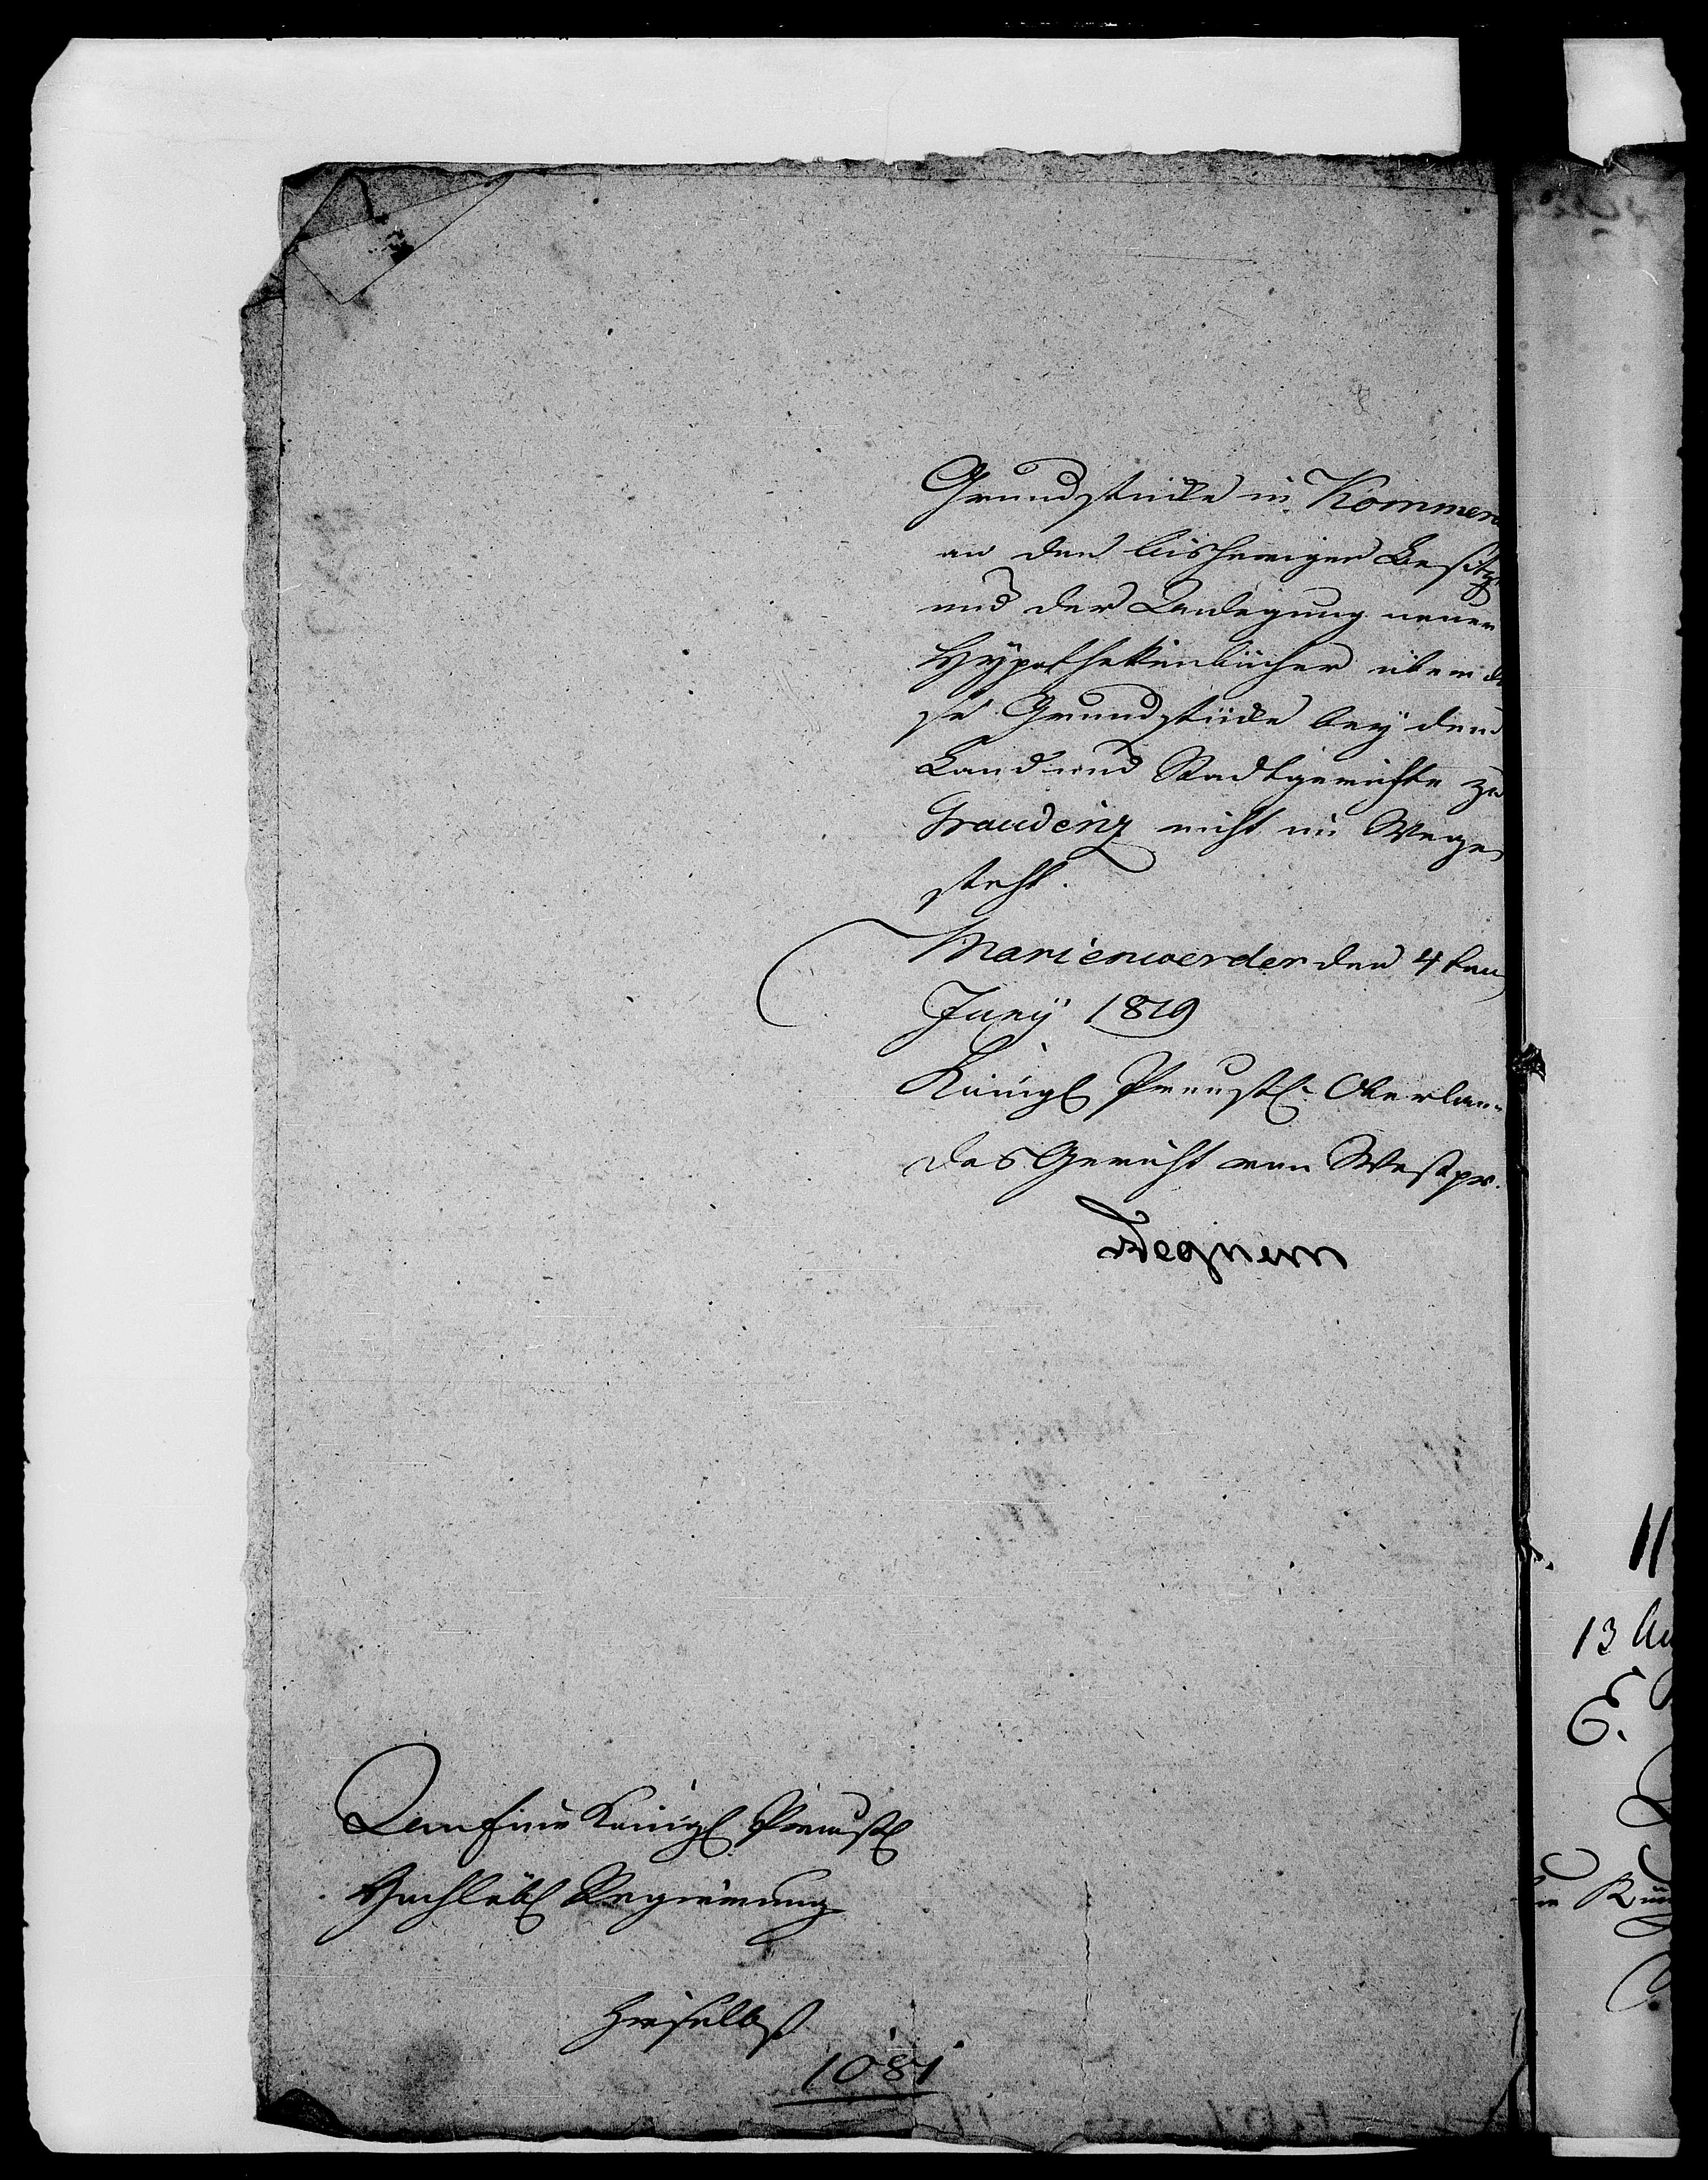 Grundstücke in Kommen
an den bisherigen Besitz
und der Anlegung neuer
Hypothekenbücher über d
se Grundstücke bey dem
Land und Stadtgerichte zu
Graudenz nicht im Wege
steht.
Marienwerder den 4 ten
Juny 1819
Königl Preußl. Oberlan-
des Gericht von Westpr.
An eine Königl Preußl
Hochlöbl Regierung
hieselbst
1081
13 Au
E.